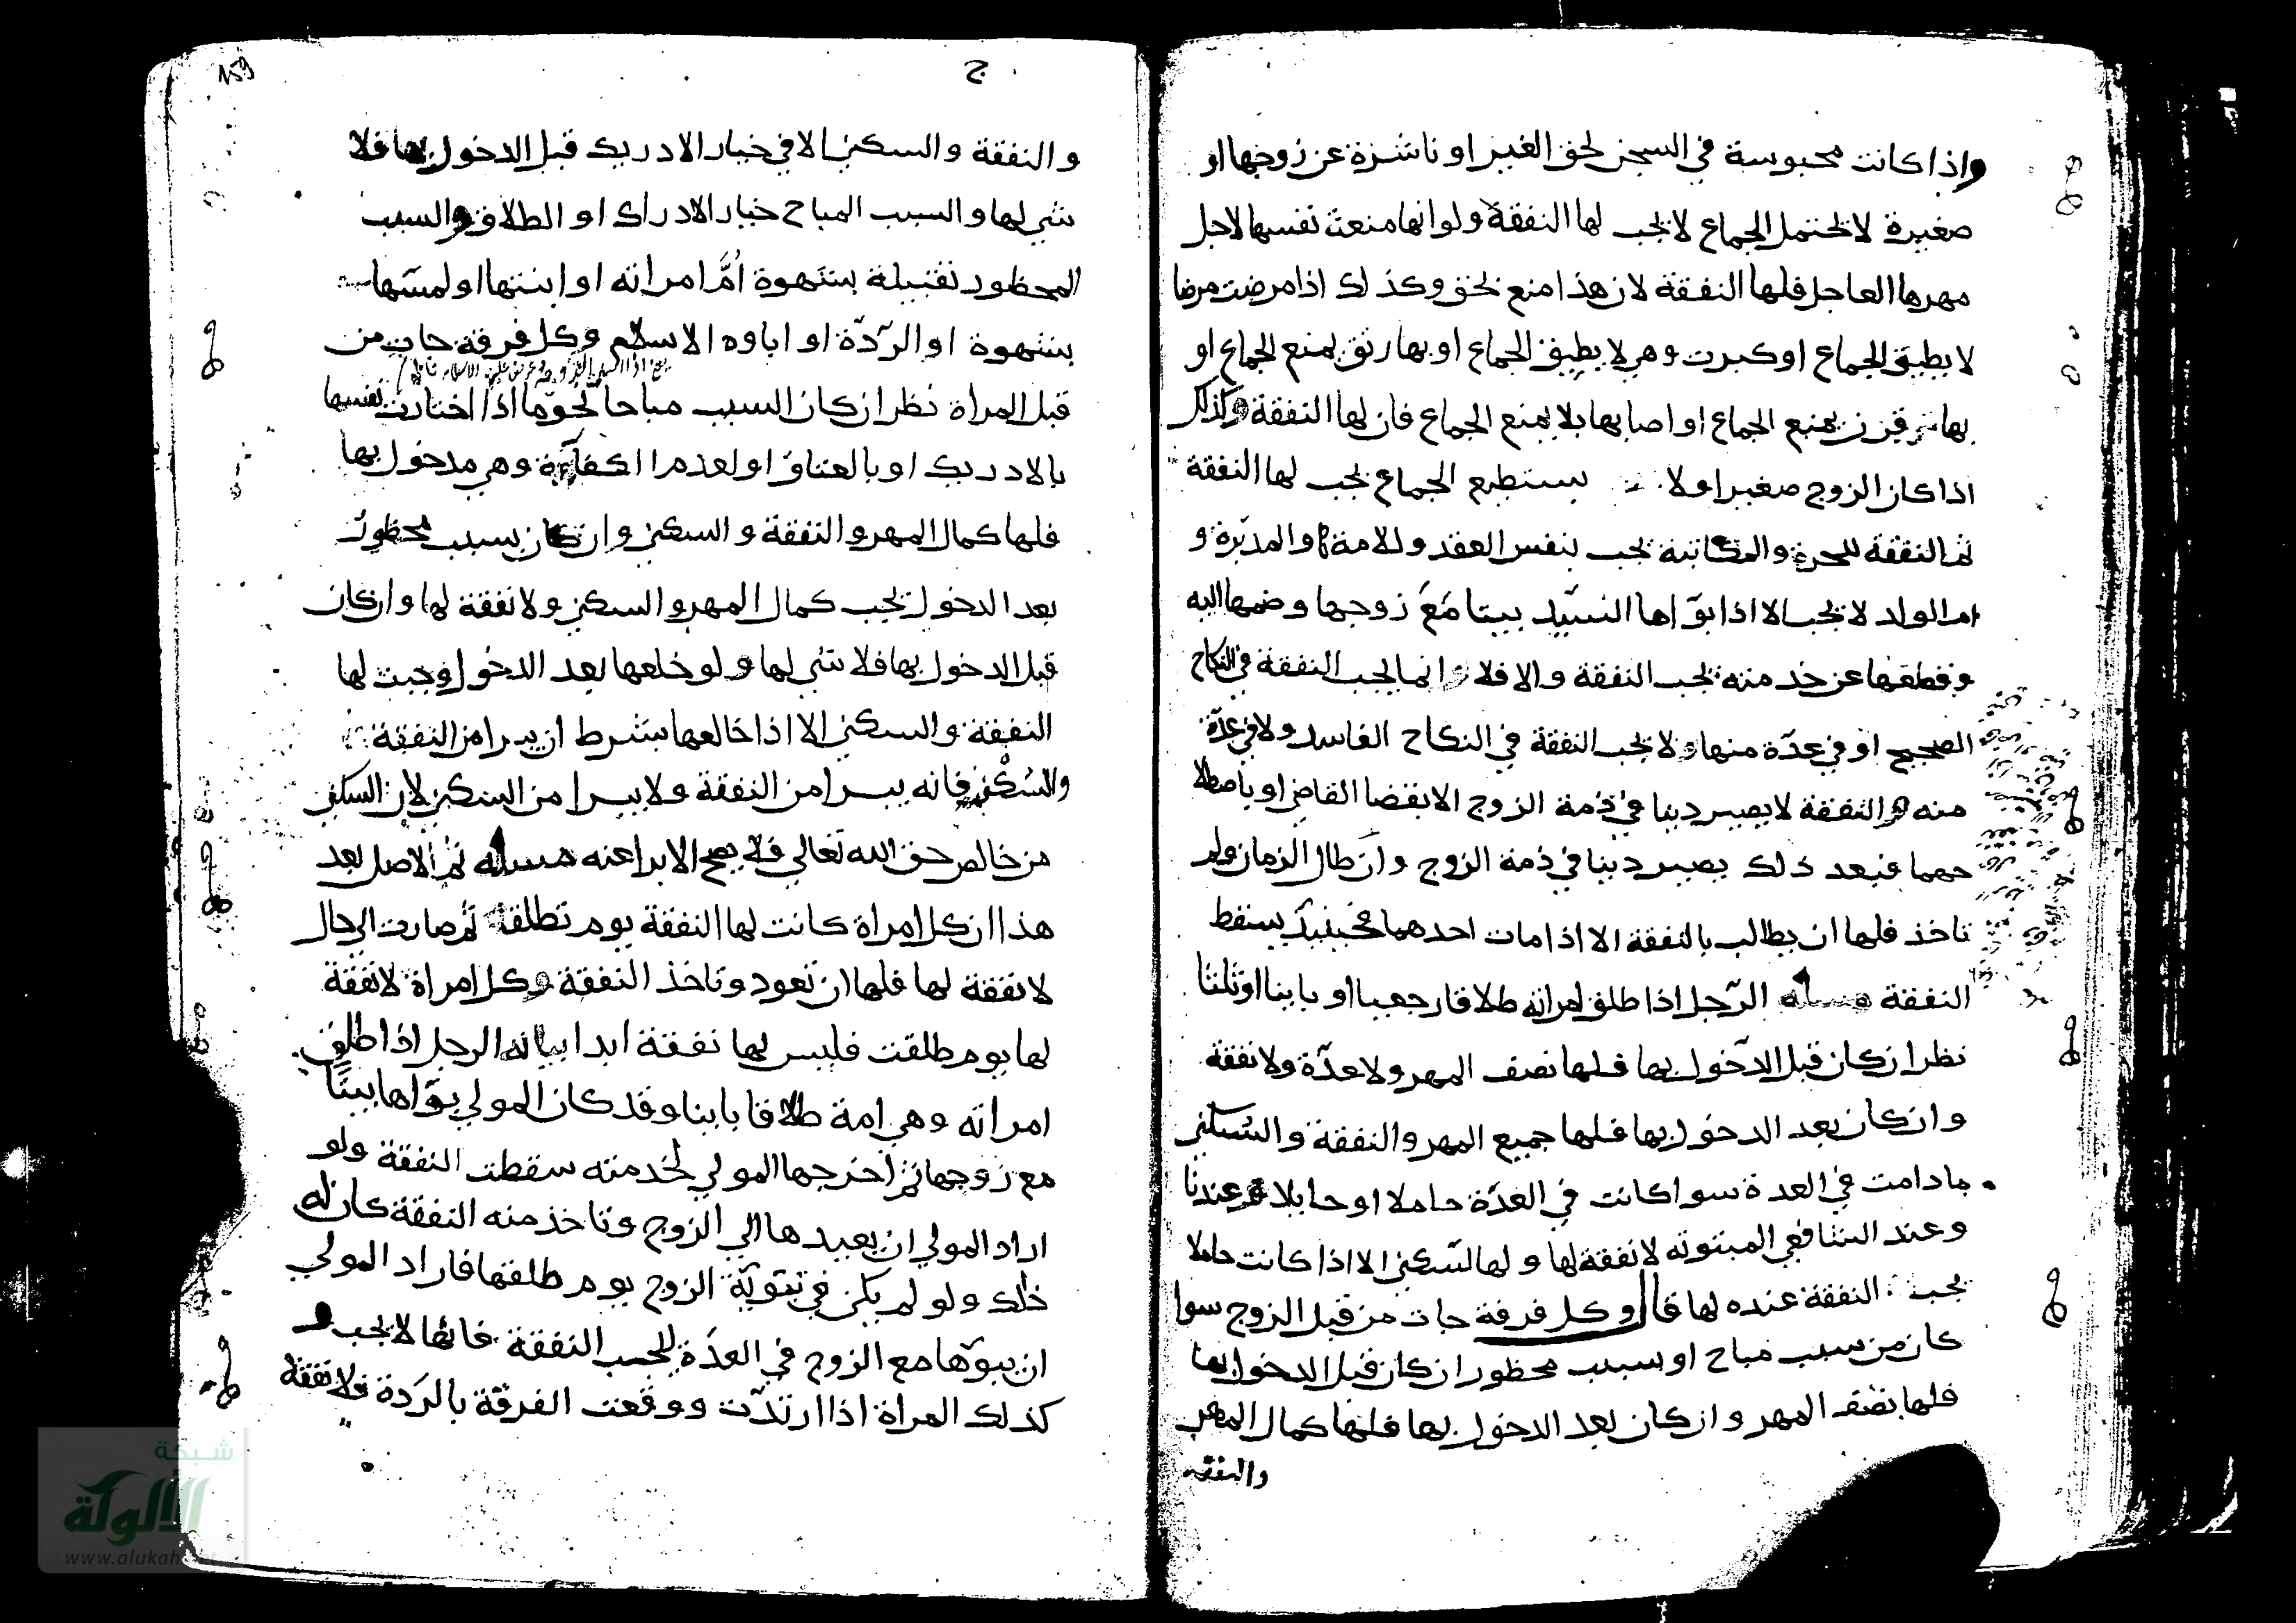 واذا كانت محبوسة في السجن لحق الغير او ناشزة عن زوجها او
صغيرة لا تحتمل الجماع لا تجب لها النفقة ولو انها منعت نفسها لاجل
مهرها العاجل فلها النفقة لان هذا منع بحق وكذلك اذا مرضت مرضا
لا يطيق الجماع او كبرت وهي لا يطيق الجماع او بها رتق يمنع الجماع او
بها قرن يمنع الجماع او اصابها بلا يمنع الجماع فان لها النفقة وكذلك
اذا كان الزوج صغيرا ولا يستطيع الجماع تجب لها النفقة
ثم النفقة للحرة والمكاتبة تجب بنفس العقد وللامة والمدبرة و
ام الولد لا تجب الا اذا بوّاها السّيّد بيتا مَعَ زوجها وضمها اليه
وقطعها عن خدمته تجب النفقة والا فلا وانما تجب النفقة في النكاح
الصحيح او في عدّة منها ولا تجب النفقة في النكاح الفاسد ولا في عدّة
منه والنفقة لا يصير دينا في ذمة الزوج الا بقضا القاضي او باصطلا
حهما فبعد ذلك يصير دينا في ذمة الزوج وان طال الزمان ولم
تاخذ فلها ان يطالب بالنفقة الا اذا مات احدهما فحينئذ يسقط
النفقة مسله الرّجل اذا طلق امراته طلاقا رجعيا او باينا او ثلثا
نظر ان كان قبل الدّخول بها فلها نصف المهر ولا عدّة ولا نفقة
وان كان بعد الدخول بها فلها جميع المهر والنفقة والسُّكنى
ما دامت في العدة سوا كانت في العدّة حاملا او حايلا عندنا
وعند الشافعي المبتوته لا نفقة لها ولها السّكنى الا اذا كانت حاملا
تجب النفقة عنده لها قال وكل فرقة جات من قبل الزوج سوا
كان من سبب مباح او سبب محظور ان كان قبل الدخول بها
فلها نصف المهر وان كان بعد الدخول بها فلها كمال المهر
والنفقة
159
ج
والنفقة والسكنى الا في خيار الادريك قبل الدخول بها فلا
شي لها والسبب المباح خيار الادراك او الطلاق والسبب
المحظور تقبيلة بشهوة اُمَّ امراته او ابنتها او لمسّها
بشهوة او الرّدّة او اباوه الاسلام وكل فرقة جات من
قبل المراة نظر ان كان السبب مباحا نحو ما اذا اختارت نفسها
بالادريك او بالعتاق او لعدم الكفآءة وهي مدخول بها
فلها كمال المهر والنفقة والسكنى وان كان بسبب محظور
بعد الدخول تجب كمال المهر والسكنى ولا نفقة لها وان كان
قبل الدخول بها فلا شي لها ولو خلعها بعد الدخول وجبت لها
النفقة والسكنى الا اذا خالعها بشرط ان يبرا من النفقة
والسُكْنى فانه يبرا من النفقة ولا يبرا من السكنى لان السكنى
من خالص حق الله تعالي فلا يصح الابرا عنه مسله ثم الاصل بعد
هذا ان كل امراة كانت لها النفقة يوم تطلقت ثم صارت الى حال
لا نفقة لها فلها ان تعود وتاخذ النفقة وكل امراة لا نفقة
لها يوم طلقت فليس لها نفقة ابدا بيانه الرجل اذا طلق
امراته وهي امة طلاقا باينا وقد كان المولي بوّاها بيتًا
مع زوجها ثم اخرجها المولي لخدمته سقطت النفقة ولو
اراد المولي ان يعيدها الي الزوج وتاخذ منه النفقة كان له
ذلك ولو لم يكن في تبوية الزوج يوم طلقها فاراد المولي
ان يبوّها مع الزوج في العدّة لتجب النفقة فانها لا تجب و
كذلك المراة اذا ارتدّت ووقعت الفرقة بالردة فلا نفقة
شبكة
الألوكة
www.alukah